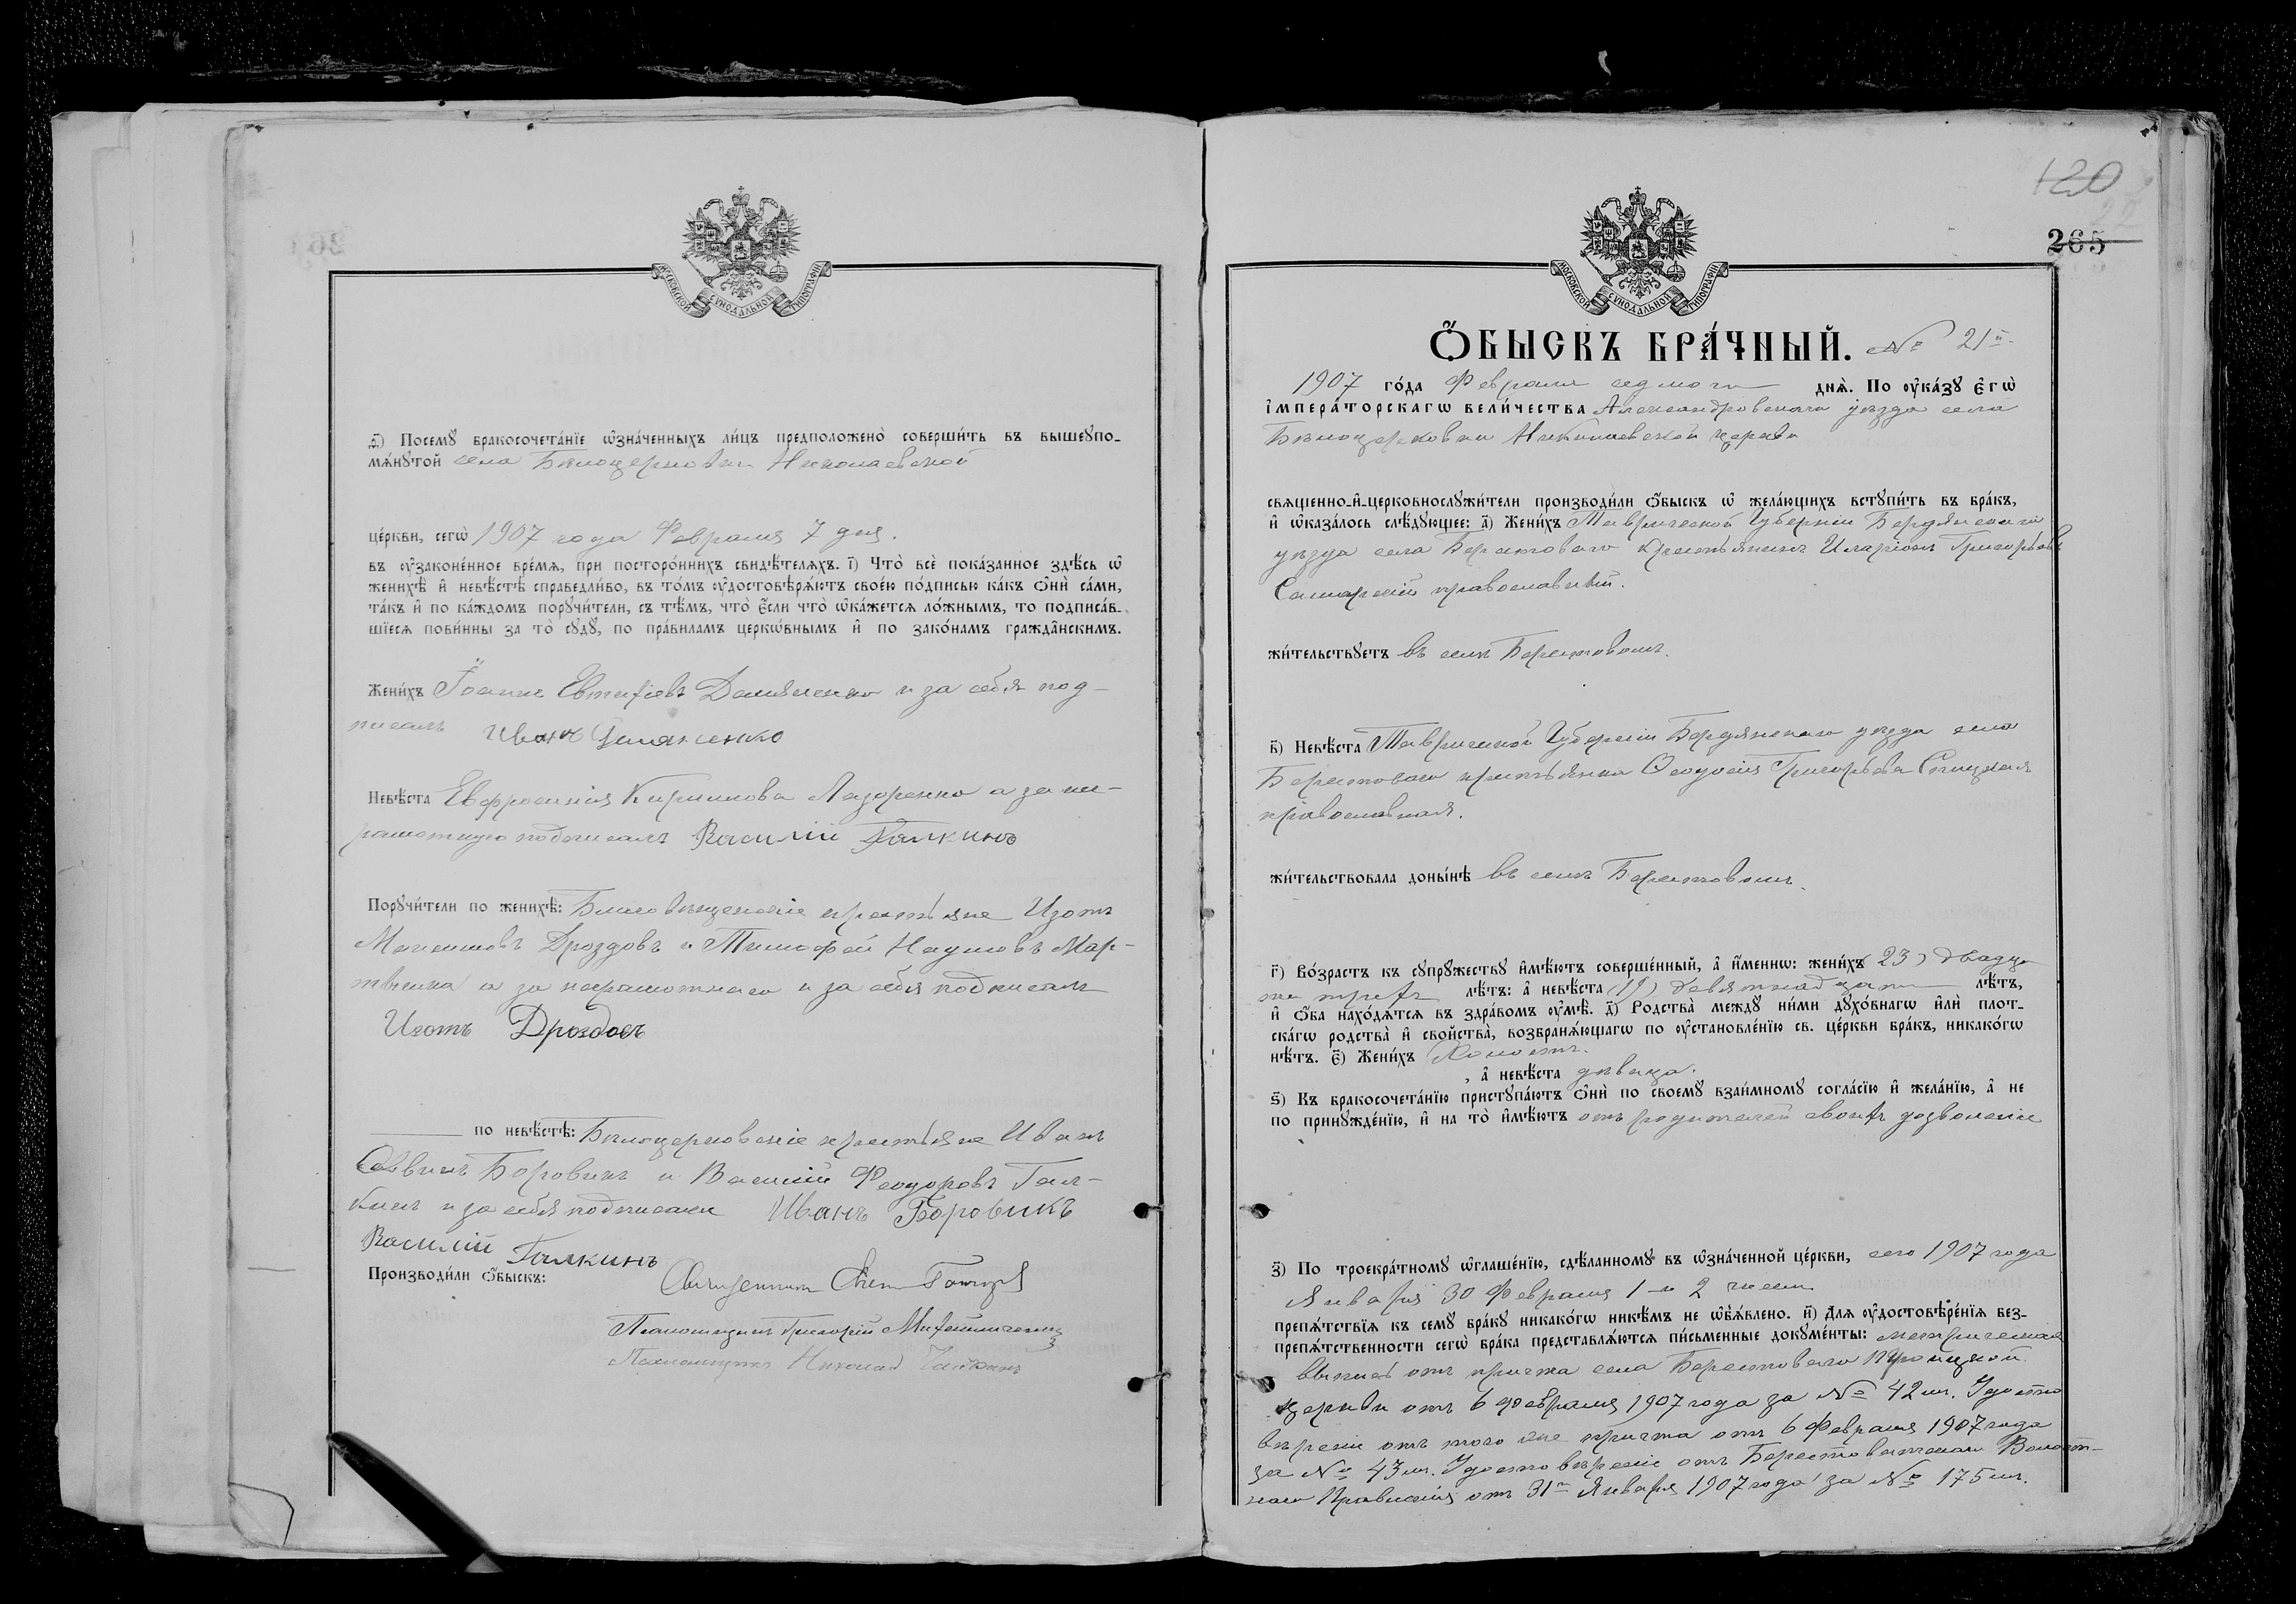 МОСКОВСКОЙ СѴНОДАЛЬНОЙ ТИПОГРАФІИ
д҃) Посемꙋ̀ бракосочета́нїе ѡ҆зна́ченныхъ ли́цъ предположено̀ соверши́ть въ вышеꙋпо-
мѧ́нꙋтой села Бѣлоцерковки Николаевской
це́ркви, сегѡ̀ 1907 года Февраля 7 дня.
въ ᲂу҆зако́ненное вре́мѧ, при посторо́ннихъ свидѣ́телѧхъ. і҃) Что̀ всѐ пока́занное здѣ́сь ѡ҆
женихѣ̀ и҆ невѣ́стѣ справедли́во, въ то́мъ ᲂу҆достовѣрѧ́ютъ свое́ю по́дписью ка́къ ѻ҆нѝ са́ми,
та́къ и҆ по ка́ждомъ порꙋчи́тели, съ тѣ́мъ, что̀ є҆́сли что̀ ѡ҆ка́жетсѧ ло́жнымъ, то подписа́в-
шїесѧ пови́нны за то̀ сꙋдꙋ̀, по пра́виламъ церкѡ́внымъ и҆ по зако́намъ гражда̂нскимъ.
Жени́хъ Іоаннъ Евтихіевъ Демяненко и за себя под-
писалъ Иванъ Демяненко
Невѣ́ста Евфросинія Кириллова Лазоренко а за не-
грамотную подписалъ Василій Галкинъ
Порꙋчи́тели по женихѣ̀: Благовѣщенскіе крестьяне Изотъ
Дроздовъ и Тимофей Наумовъ Мар-
а за неграмотнаго и за себя подписалъ
Изотъ Дроздовъ
по невѣ́стѣ: Бѣлоцерковскіе крестьяне Иванъ
Саввинъ Боровикъ и Василій Феодоровъ Гал-
кинъ и за себя подписали Иванъ Боровикъ
Василій Галкинъ
Производи́ли ѻ҆́быскъ:
Священникъ
Псаломщикъ Григорій
Псаломщикъ Николай
120
265
МОСКОВСКОЙ СѴНОДАЛЬНОЙ ТИПОГРАФІИ
Ѻ҆́БЫСКЪ БРА́ЧНЫЙ. № 21й
1907 го́да Февраля седмого днѧ̀. По ᲂу҆ка́зꙋ є҆гѡ̀
і҆мпера́торскагѡ вели́чества Александровскаго уѣзда села
Бѣлоцерковки Николаевской церкви
свѧще́нно-и҆-церковнослꙋжи́тели производи́ли ѻ҆́быскъ ѡ҆ жела́ющихъ встꙋпи́ть въ бра́къ,
и҆ ѡ҆каза́лось слѣ́дꙋющее: а҃) Жени́хъ Таврической Губерніи Бердянскаго
уѣзда села Берестоваго крестьянинъ Иларіонъ Григорьевъ
православный.
жи́тельствꙋетъ въ селѣ Берестовомъ.
в҃) Невѣ́ста Таврической Губерніи Бердянскаго уѣзда села
Берестоваго крестьянка Феодосія Григорьева
православная.
жи́тельствовала доны́нѣ въ селѣ Берестовомъ.
г҃) Во́зрастъ къ сꙋпрꙋ́жествꙋ и҆мѣ́ютъ соверше́нный, а҆ и҆́меннѡ: жени́хъ 23) двадца-
ти трехъ лѣ́тъ: а҆ невѣ́ста (19) девятнадцати лѣ́тъ,
и҆ ѻ҆́ба нахо́дѧтсѧ въ здра́вомъ ᲂу҆мѣ̀. д҃) Родства̀ междꙋ̀ ни́ми дꙋхо́внагѡ и҆лѝ плот-
ска́гѡ родства̀ и҆ сво́йства̀, возбранѧ́ющагѡ по ᲂу҆становле́нїю св. це́ркви бра́къ, никако́гѡ
нѣ́тъ. є҃) Жени́хъ Холостъ.
, а҆ невѣ́ста дѣвица.
ѕ҃) Къ бракосочета́нїю пристꙋпа́ютъ ѻ҆нѝ по своемꙋ̀ взаи́мномꙋ согла́сїю и҆ жела́нїю, а҆ не
по принꙋжде́нїю, и҆ на то̀ и҆мѣ́ютъ отъ родителей своихъ дозволеніе
з҃) По троекра́тномꙋ ѡ҆глаше́нїю, сдѣ́ланномꙋ въ ѡ҆зна́ченной це́ркви, сего 1907 года
Января 30 Февраля 1 и 2 чиселъ
препѧ́тствїѧ къ семꙋ̀ бра́кꙋ никако́гѡ никѣ́мъ не ѡ҆б̾ѧ́влено. и҃) Длѧ ᲂу҆достовѣре́нїѧ без-
препѧ́тственности сегѡ̀ бра́ка представлѧ́ютсѧ пи́сьменные докꙋме́нты: метрическая
выпись отъ причта села Берестоваго Троицкой
церкви отъ 6 Февраля 1907 года за № 42мъ. Удосто-
вѣреніе отъ того же причта отъ 6 Февраля 1907 года
за № 43мъ. Удостовѣреніе отъ Берестоватскаго Волост-
ного Правленія отъ 31го Января 1907 года за № 175мъ.